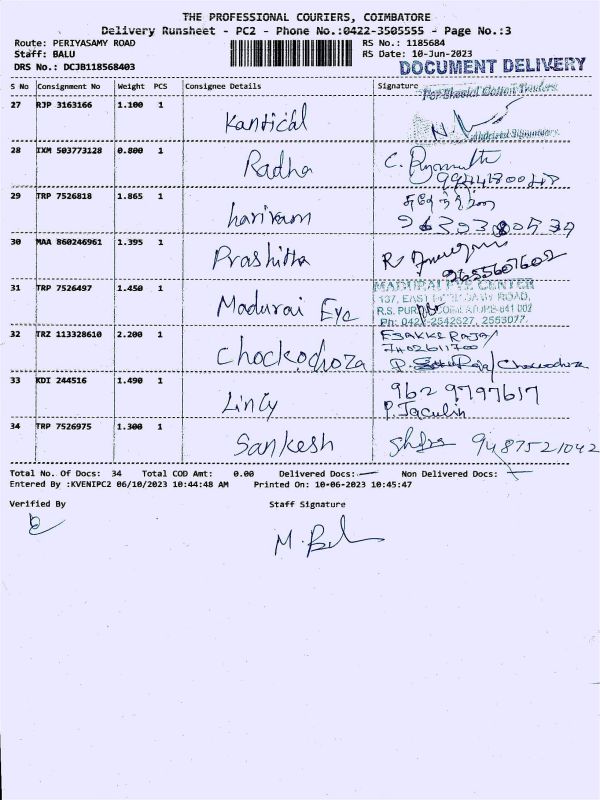 THE PROFESSIONAL COURIERS, COIMBATORE
Delivery Runsheet - PC2 - Phone No.:0422-3505555 - Page No.:3
Route: PERIYASAMY ROAD RS No.: 1185684
Staff: BALU RS Date: 10-Jun-2023
DRS No.: DCJB118568403 DOCUMENT DELIVERY
S No Consignment No Weight PCS Consignee Details Signature
27 RJP 3163166 1.100 1 Kantical
28 IXM 503773128 0.800 1 Radha
29 TRP 7526818 1.865 1 hariram
30 MAA 860246961 1.395 1 Prashitta R
9655607602
31 TRP 7526497 1.450 1 Madurai Eye MADURAI EYE CENTER
137, EAST ROAD,
R.S. PUR COIMBATORE-641 002
Ph: 0422-2542627, 2553077.
32 TRZ 113328610 2.200 1 Chockochoza ESAKKI RAJA/
7402611700
33 KDI 244516 1.490 1 Lincy 9629797617
P. Jaculin
34 TRP 7526975 1.300 1 Sankesh 9487521042
Total No. Of Docs: 34 Total COD Amt: 0.00 Delivered Docs: — Non Delivered Docs: —
Entered By :KVENIPC2 06/10/2023 10:44:48 AM Printed On: 10-06-2023 10:45:47
Verified By Staff Signature